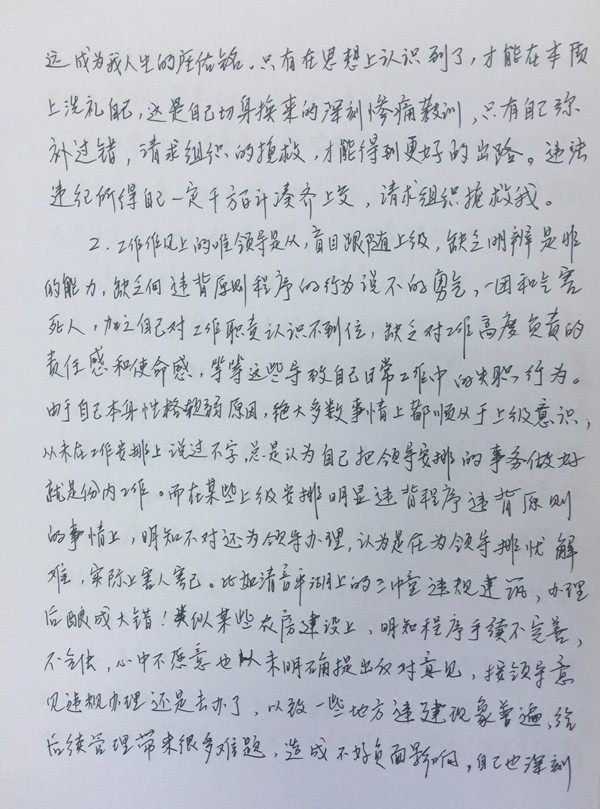 远成为我人生的座佑铭。只有在思想上认识到了，才能在本质
上洗礼自己，这是自己切身换来的深刻惨痛教训，只有自己弥
补过错，请求组织的挽救，才能得到更好的出路。违法
违纪所得自己一定千方百计凑齐上交，请求组织挽救我。
2．工作作风上的唯领导是从，盲目跟随上级，缺乏明辨是非
的能力，缺乏向违背原则程序的行为说不的勇气，一团和气害
死人，加之自己对工作职责认识不到位，缺乏对工作高度负责的
责任感和使命感，等等这些导致自己日常工作中的失职行为。
由于自己本身性格软弱原因，绝大多数事情上都顺从于上级意识，
从未在工作安排上说过不字，总是认为自己把领导安排的事务做好
就是份内工作。而在某些上级安排明显违背程序违背原则
的事情上，明知不对还为领导办理，认为是在为领导排忧解
难，实际上害人害己。比如清音平湖上的三冲堂违规建筑，办理
后酿成大错！类似某些农房建设上，明知程序手续不完善，
不合法，心中不愿意也从未明确提出反对意见，按领导意
见违规办理还是去办了，以致一些地方违建现象普遍，给
后续管理带来很多难题，造成不好负面影响，自己也深刻